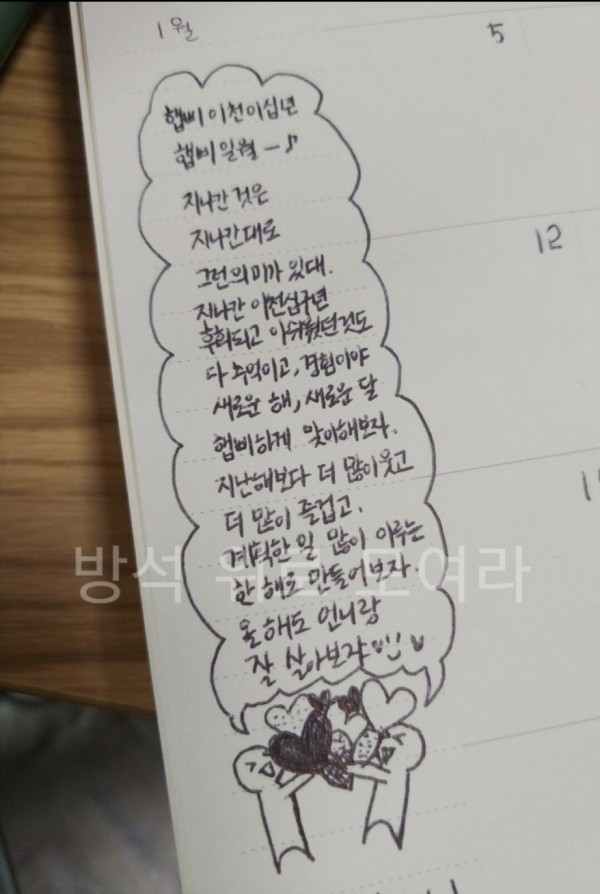 1월
5
햅삐 이천이십년
햅삐 일월 ー♪
지나간 것은
지나간대로
그런의미가 있대.
지나간 이천십구년
후회되고 아쉬웠던것도
다 추억이고, 경험이야
새로운 해, 새로운 달
햅삐하게 맞이해보자.
지난해보다 더 많이웃고
더 많이 즐겁고.
계획한 일 많이 이루는
한 해로 만들어보자.
올해도 언니랑
잘 살아보자
12
방석 위로 모여라